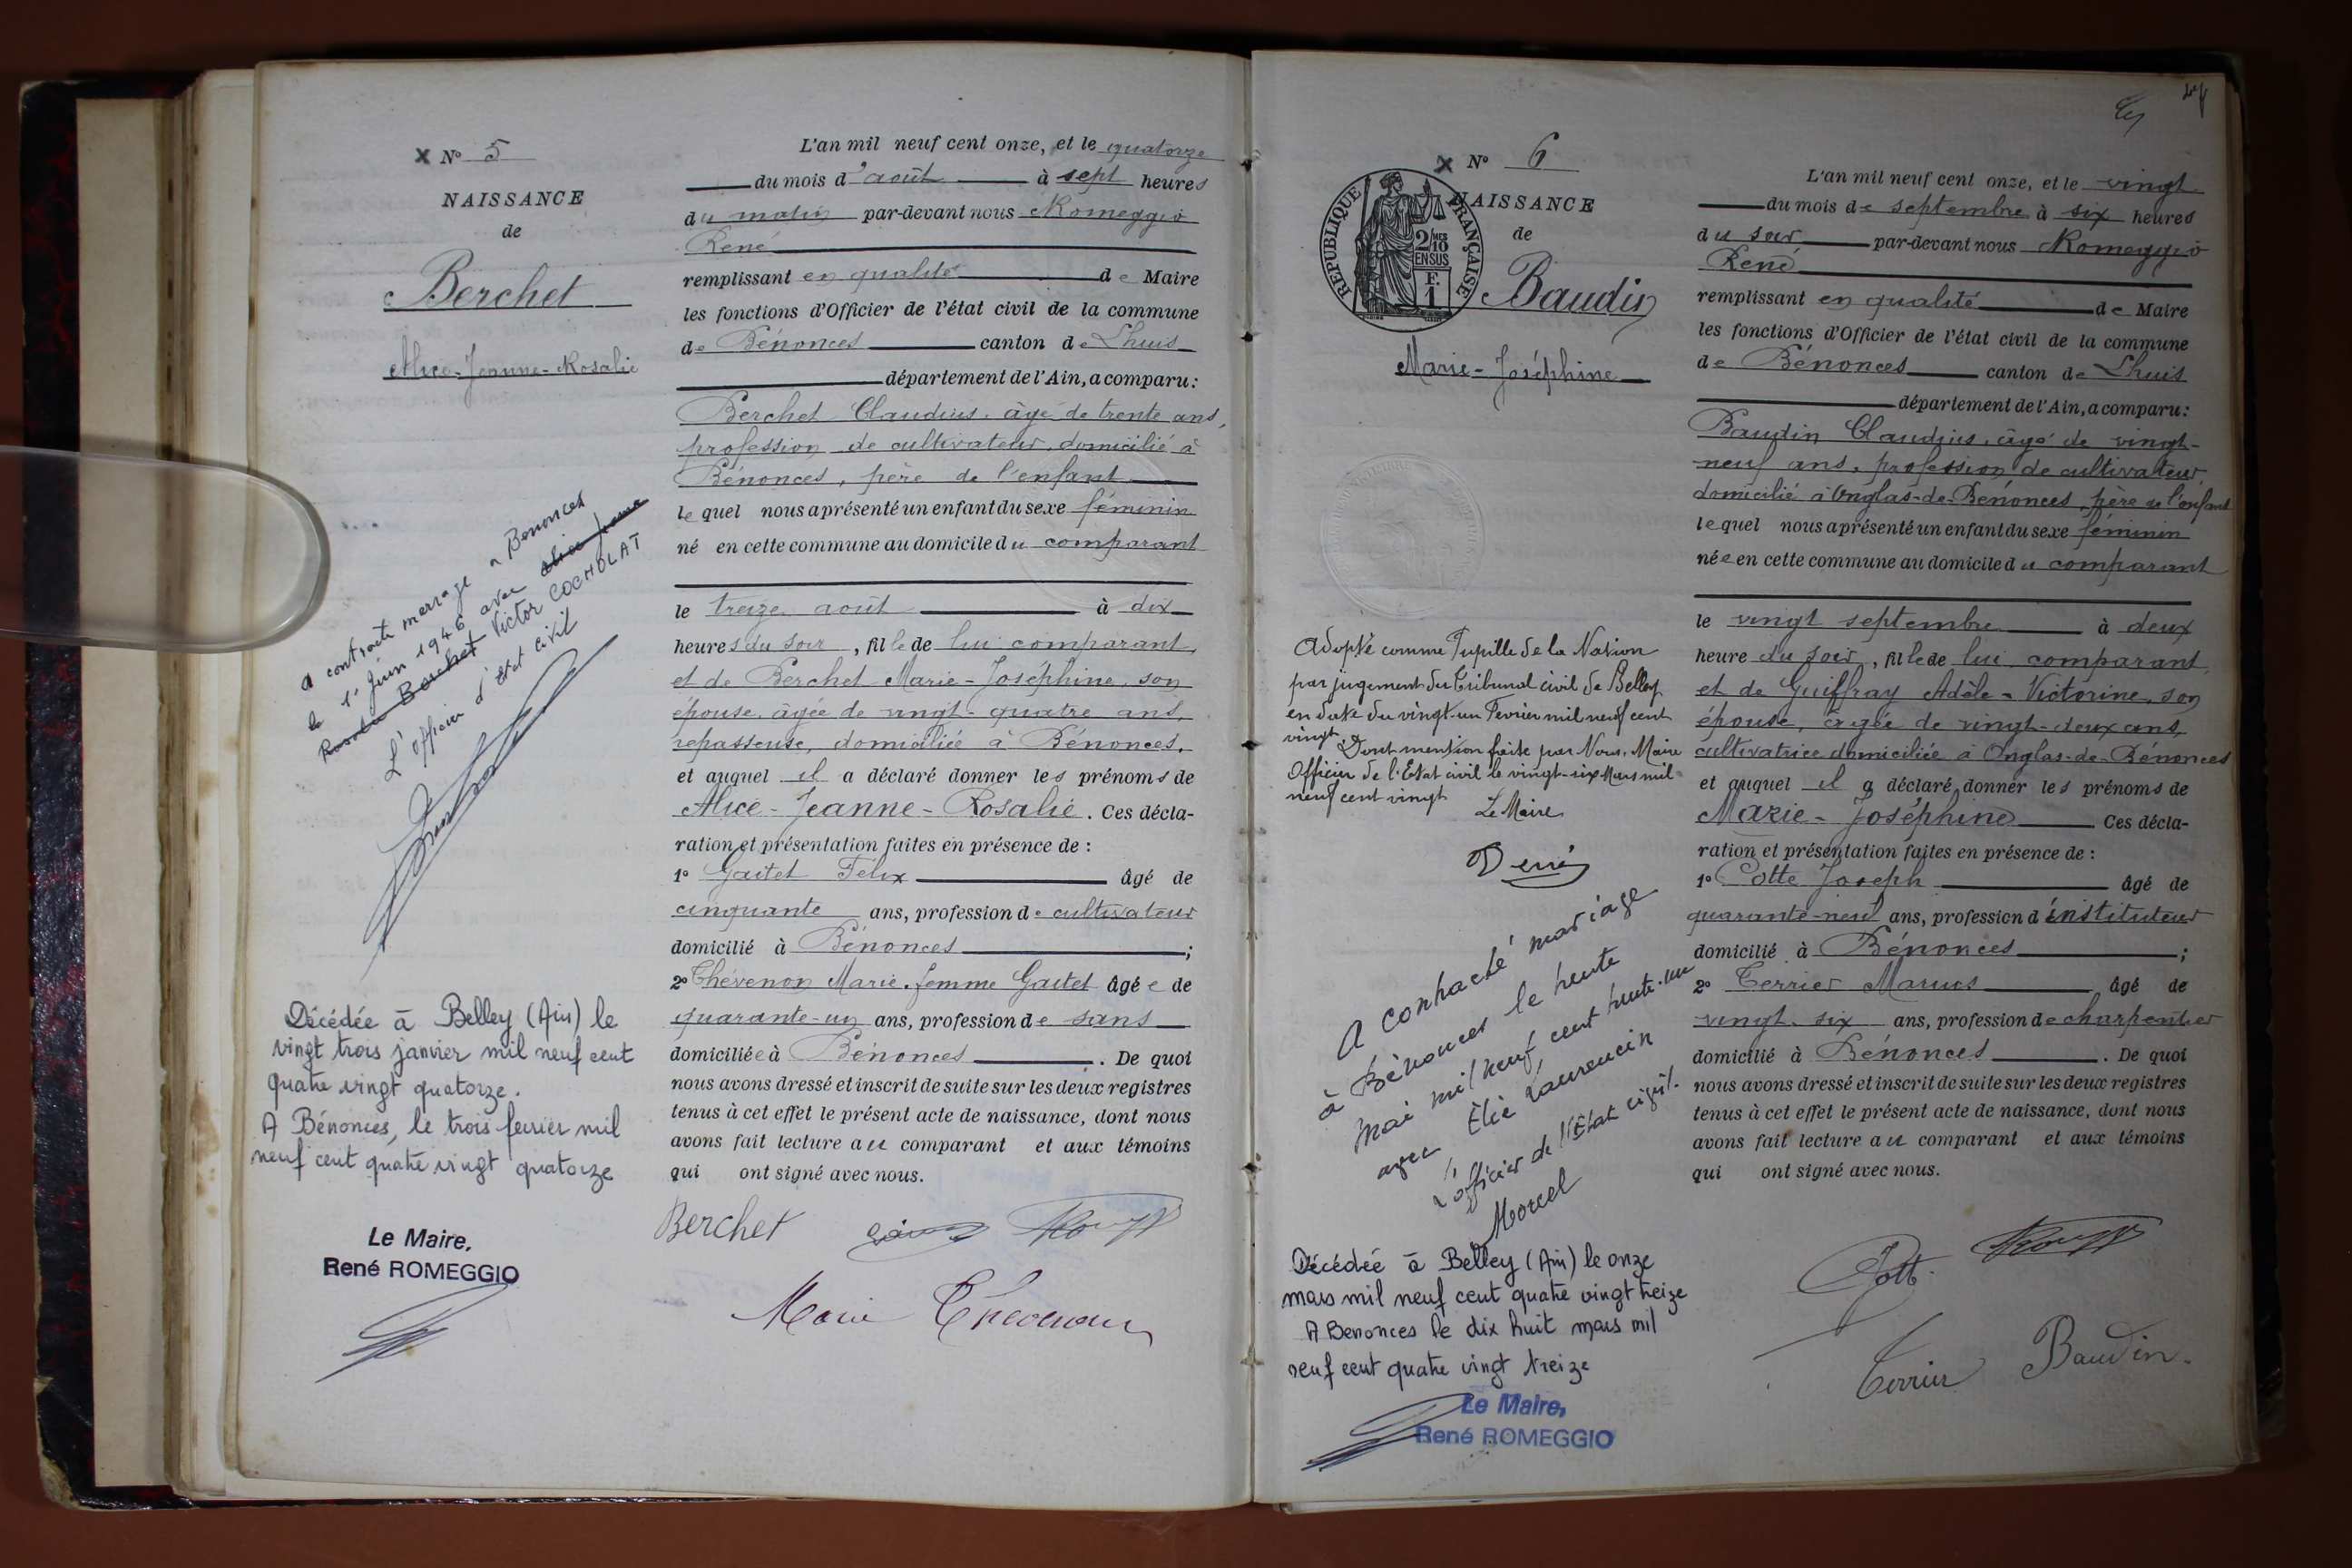 x N° 5
NAISSANCE
de
Berchet
Alice-Jeanne-Rosalie
A contracté marriage à Benonces
le 1er Juin 1946 avec Alice Jeanne
Rosalie Berchet Victor COCHOLAT
L'officier d'état civil
Décédée à Belley (Ain) le
vingt trois janvier mil neuf cent
quatre vingt quatorze.
A Bénonces, le trois fevrier mil
neuf cent quatre vingt quatorze
Le Maire,
René ROMEGGIO
L'an mil neuf cent onze, et le quatorze
du mois d'août à sept heures
du matin par-devant nous Romeggio
René
remplissant en qualité de Maire
les fonctions d'Officier de l'état civil de la commune
de Bénonces canton de Lhuis
département de l'Ain, a comparu:
Berchet Claudius, âgé de trente ans,
profession de cultivateur, domicilié à
Bénonces, père de l'enfant
lequel nous a présenté un enfant du sexe féminin
né en cette commune au domicile du comparant
le treize août à dix
heures du soir, fille de lui comparant,
et de Berchet Marie-Joséphine, son
épouse, âgée de vingt-quatre ans,
repasseuse, domiciliée à Bénonces.
et auquel il a déclaré donner les prénoms de
Alice-Jeanne-Rosalie. Ces décla-
ration et présentation faites en présence de :
1° Gaitet Félix âgé de
cinquante ans, profession de cultivateur
domicilié à Bénonces ;
2° Thévenon Marie, femme Gaitet âgée de
quarante-un ans, profession de sans
domiciliée à Bénonces. De quoi
nous avons dressé et inscrit de suite sur les deux registres
tenus à cet effet le présent acte de naissance, dont nous
avons fait lecture au comparant et aux témoins
qui ont signé avec nous.
Berchet
Marie Thévenon
x N° 6
NAISSANCE
de
REPUBLIQUE FRANÇAISE
2/MES 10 EN SUS
F. 1
Baudin
Marie-Joséphine
Adopté comme Pupille de la Nation
par jugement du Tribunal civil de Belley
en date du vingt-un Fevrier mil neuf cent
vingt. Dont mention faite par Nous, Maire
Officier de l'Etat civil le vingt-six Mars mil
neuf cent vingt
Le Maire
A contracté mariage
à Bénonces le trente
mai mil neuf cent trente-un
avec Elie Laurencin
L'officier de l'Etat civil.
Morcel
Décédée à Belley (Ain) le onze
mars mil neuf cent quatre vingt treize
A Benonces le dix huit mars mil
neuf cent quatre vingt treize
Le Maire,
René ROMEGGIO
L'an mil neuf cent onze, et le vingt
du mois de septembre à six heures
du soir par-devant nous Romeggio
René
remplissant en qualité de Maire
les fonctions d'Officier de l'état civil de la commune
de Bénonces canton de Lhuis
département de l'Ain, a comparu:
Baudin Claudius, âgé de vingt-
neuf ans, profession de cultivateur,
domicilié à Onglas-de-Bénonces, père de l'enfant
lequel nous a présenté un enfant du sexe féminin
née en cette commune au domicile du comparant
le vingt septembre à deux
heure du soir, fille de lui comparant,
et de Guiffray Adèle-Victorine, son
épouse, âgée de vingt-deux ans,
cultivatrice domiciliée à Onglas-de-Bénonces
et auquel il a déclaré donner les prénoms de
Marie-Joséphine Ces décla-
ration et présentation faites en présence de :
1° Cotte Joseph âgé de
quarante-neuf ans, profession d'instituteur
domicilié à Bénonces ;
2° Terrier Marius âgé de
vingt-six ans, profession de charpentier
domicilié à Bénonces. De quoi
nous avons dressé et inscrit de suite sur les deux registres
tenus à cet effet le présent acte de naissance, dont nous
avons fait lecture au comparant et aux témoins
qui ont signé avec nous.
Cotte
Terrier Baudin.